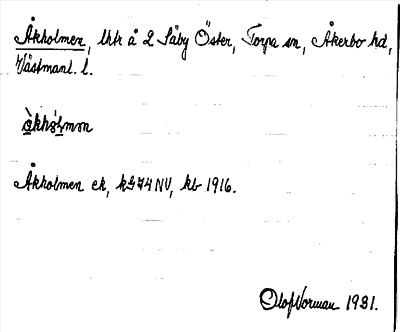 Åkholmen, lhtr å 2 Säby Öster, Torpa sn, Åkerbo hd,
Västmanl. l.
Åkholmen ek, kS 74 NV, kb 1916.
Olof Norman 1931.